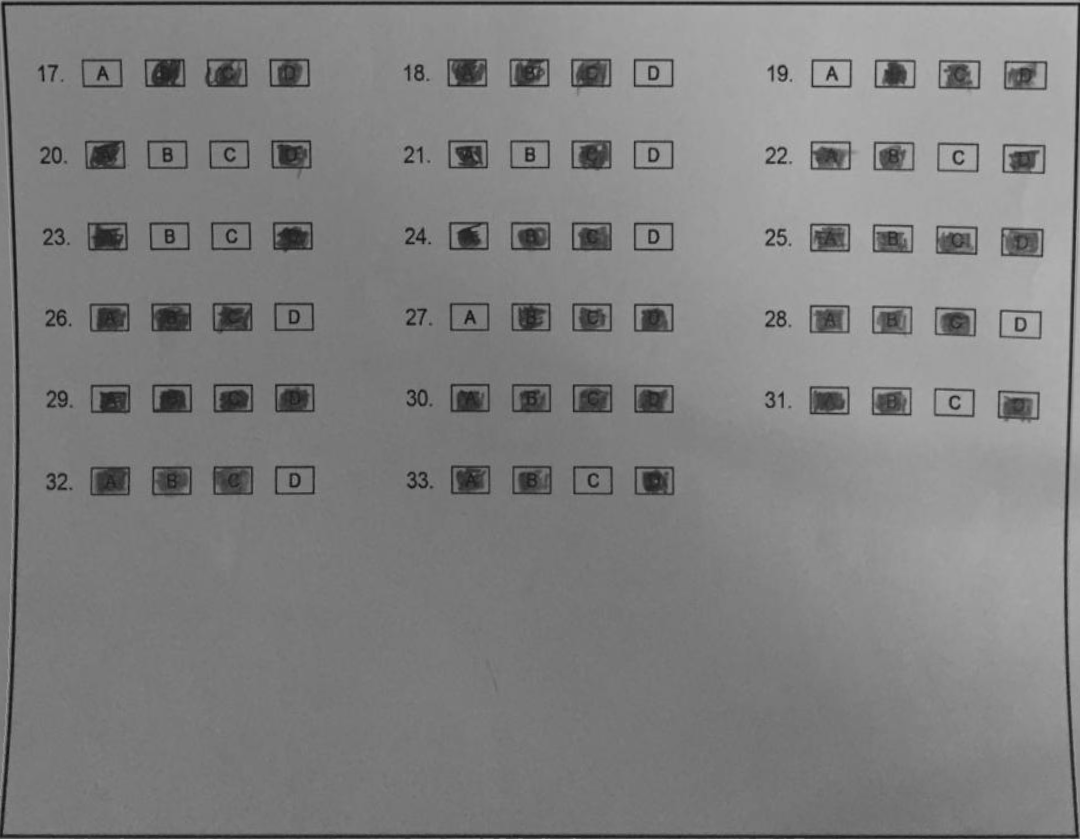 17. A B C D 18. A B C D 19. A C D
20. A B C D 21. A B C D 22. A B C D
23. B C D 24. B C D 25. A B C D
26. A B C D 27. A B C D 28. A B C D
29. A B C D 30. A B C D 31. A B C D
32. A B C D 33. A B C D